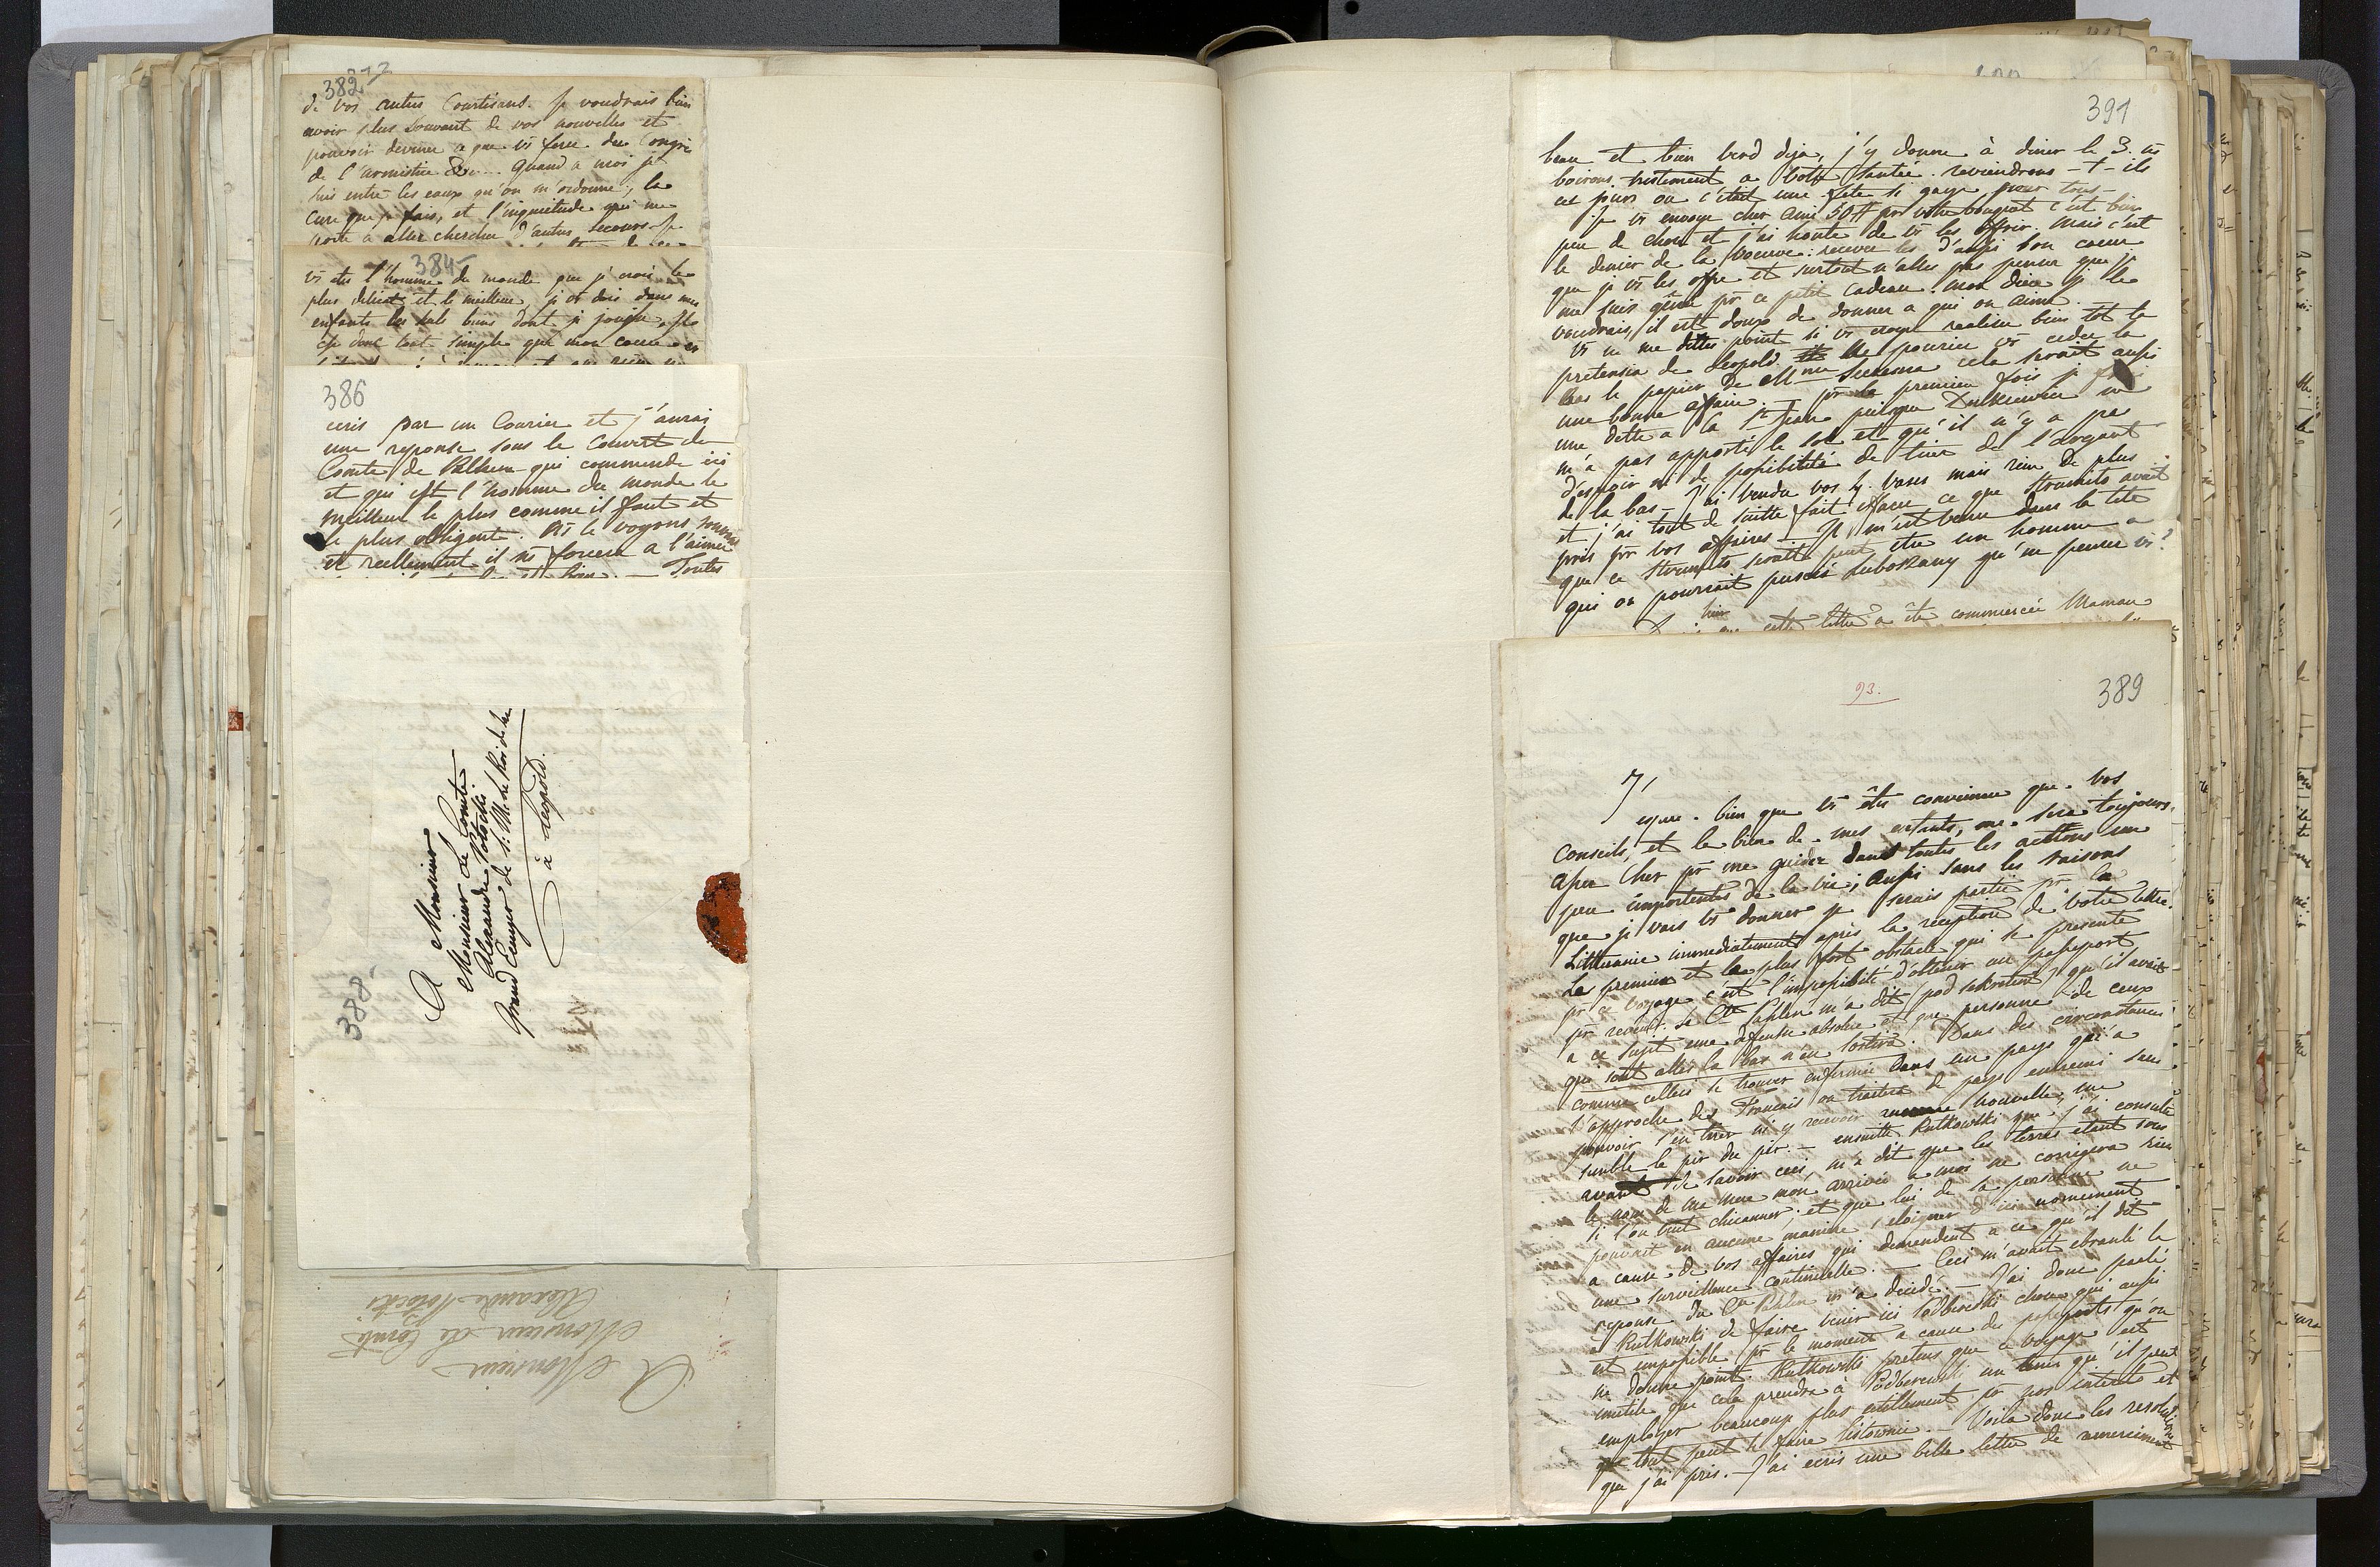 382
de vos autres Courtisans. Je voudrais bien
avoir plus souvent de vos nouvelles et
pouvoir deviner ce que vs ferez du Congrès
de l'armistice &c... Quand a moi je
suis entre les eaux qu'on m'ordonne, la
cure que je fais, et l'inquietude qui me
porte a aller chercher d'autres secours. Je
384
vs etes l'homme du monde que je crois le
plus delicat et le meilleur, je vs dois dans mes
enfants les seuls biens dont je jouisse. Il
est donc tout simple que mon coeur
386
ecris par un Courier et j'aurai
une reponse sous le Couvert du
Comte de Pahlen qui commende ici
et qui est l'homme du monde le
meilleur le plus comme il faut et
le plus obligent. Ns le voyons souvent
et reellement il ns forcera a l'aimer
Toutes
388
A Monsieur
Monsieur Le Comte
Alexandre Potocki
Grand Ecuyer de S. M. Le Roi de Saxe
à Leopold.
A Monsieur
Monsieur Le Comte
Alexandre Potocki
391
beau et bien verd deja, j'y donne à diner le 3. ns
boirons tristement a votre santée. reviendrons-t-ils
ces jours ou c'était une fete si gaye pour tous-
Je vs envoye cher ami 50 # pr votre bouquet c'est bien
peu de chose et j'ai honte de vs les offrir. Mais c'est
le denier de la veuve: recevez les d'aussi bon coeur
que je vs les offre et surtout n'allez pas penser que je
me suis gênée pr ce petit cadeau. mon dieu je le
voudrais, il est doux de donner a qui on aime. -
Vs ne me dittes point si vs croyez realiser bien tot la
pretension de Leopold. Je pourrai vs ceder la
bas le papier de Mme cela serait aussi
une bonne affaire. - pr la premiere fois je
une dette a la St Jean puisque Dulkiewicz ne
m'a pas apporté le sol et qu'il n'y a pas
d'espoir ni de possibilité de tirer de l'argent
de la bas - J'ai vendu vos 4. vases mais rien de plus
et j'ai tout de suitte fait effacer ce que Strumito avait
pris pr vos affaires. - Il m'est venu dans la tete
que ce Strumito serait peut etre un homme a
qui on pourrait Lubokany qu'en pensez vs?
cette lettre a ete commencée Maman
93.
389
7/
esperé. bien que vs êtes convaincu que vos
Conseils, et le bien de mes enfants, me sera toujours
assez Cher pr me guider dans toutes les actions un
peu importantes de la vie; aussi sans les raisons
que je vais vs donner je serais partie pr la
Lithuanie immediatement après la reception de votre lettre.
Le premier et le plus fort obstacle qui se presente
pr ce voyage c'est l'impossibilité d'obtenir un passeport
pr revenir. Le Cte Pahlen m'a dit (pod sekretem) qu'il avait
a ce sujet une defense absolue et que personne de ceux
qui sont allés la bas n'en sortira. Dans des circonstances
comme celles ci se trouver enfermée dans un pays qui a
l'approche des Francais on traitera de pays ennemi sans
pouvoir s'en tirer ni y recevoir aucune nouvelle, me
semble le pir du pir. - ensuitte Rutkowski que j'ai consulté
avant de savoir ceci, m'a dit que les terres etant sous
le nom de ma mere mon arrivée a moi ne corrigera rien
si l'on veut chicanner; et que lui de sa personne ne
pouvait en aucune maniere s'eloigner d'ici
a cause de vos affaires qui demendent a ce qu'il dit
une surveillence continuelle. - Ceci m'avait ebranlé la
reponse du Cte Pahlen m'a decidé - J'ai donc parlé
a Rutkowski de faire venir ici Podbereski chose qui aussi
est impossible pr le moment a cause des passeports qu'on
ne donne point. Rutkowski pretens que ce voyage est
inutile que cela prendra à Podbereski un tems qu'il peut
employer beaucoup plus utillement pr nos interets et
que tout peut se faire listownie. - Voila donc les resolutions
que j'ai pris. - J'ai ecris une belle lettre de remerciment